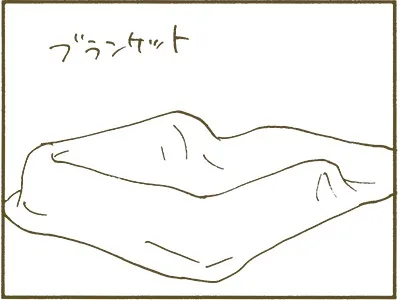 ブランケット